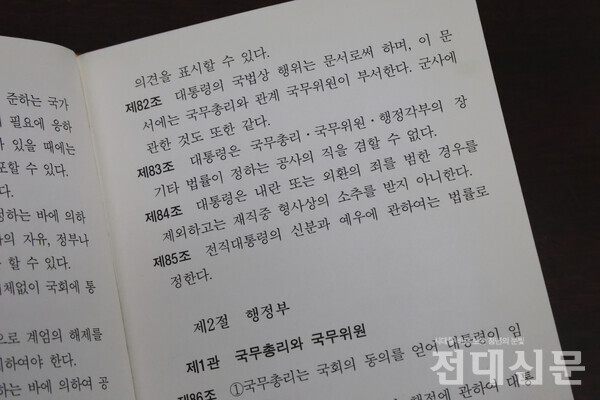 준하는 국가
필요에 응하
가 있을 때에는
포할 수 있다.
다.
정하는 바에 의하
의 자유, 정부나
할 수 있다.
체없이 국회에 통
으로 계엄의 해제를
하여야 한다.
하는 바에 의하여 공
의견을 표시할 수 있다.
제82조 대통령의 국법상 행위는 문서로써 하며, 이 문
서에는 국무총리와 관계 국무위원이 부서한다. 군사에
관한 것도 또한 같다.
제83조 대통령은 국무총리·국무위원·행정각부의 장
기타 법률이 정하는 공사의 직을 겸할 수 없다.
제84조 대통령은 내란 또는 외환의 죄를 범한 경우를
제외하고는 재직중 형사상의 소추를 받지 아니한다.
제85조 전직대통령의 신분과 예우에 관하여는 법률로
정한다.
제2절 행정부
제1관 국무총리와 국무위원
제86조 ①국무총리는 국회의 동의를 얻어 대통령이 임
행정에 관하여 대통
전대신문